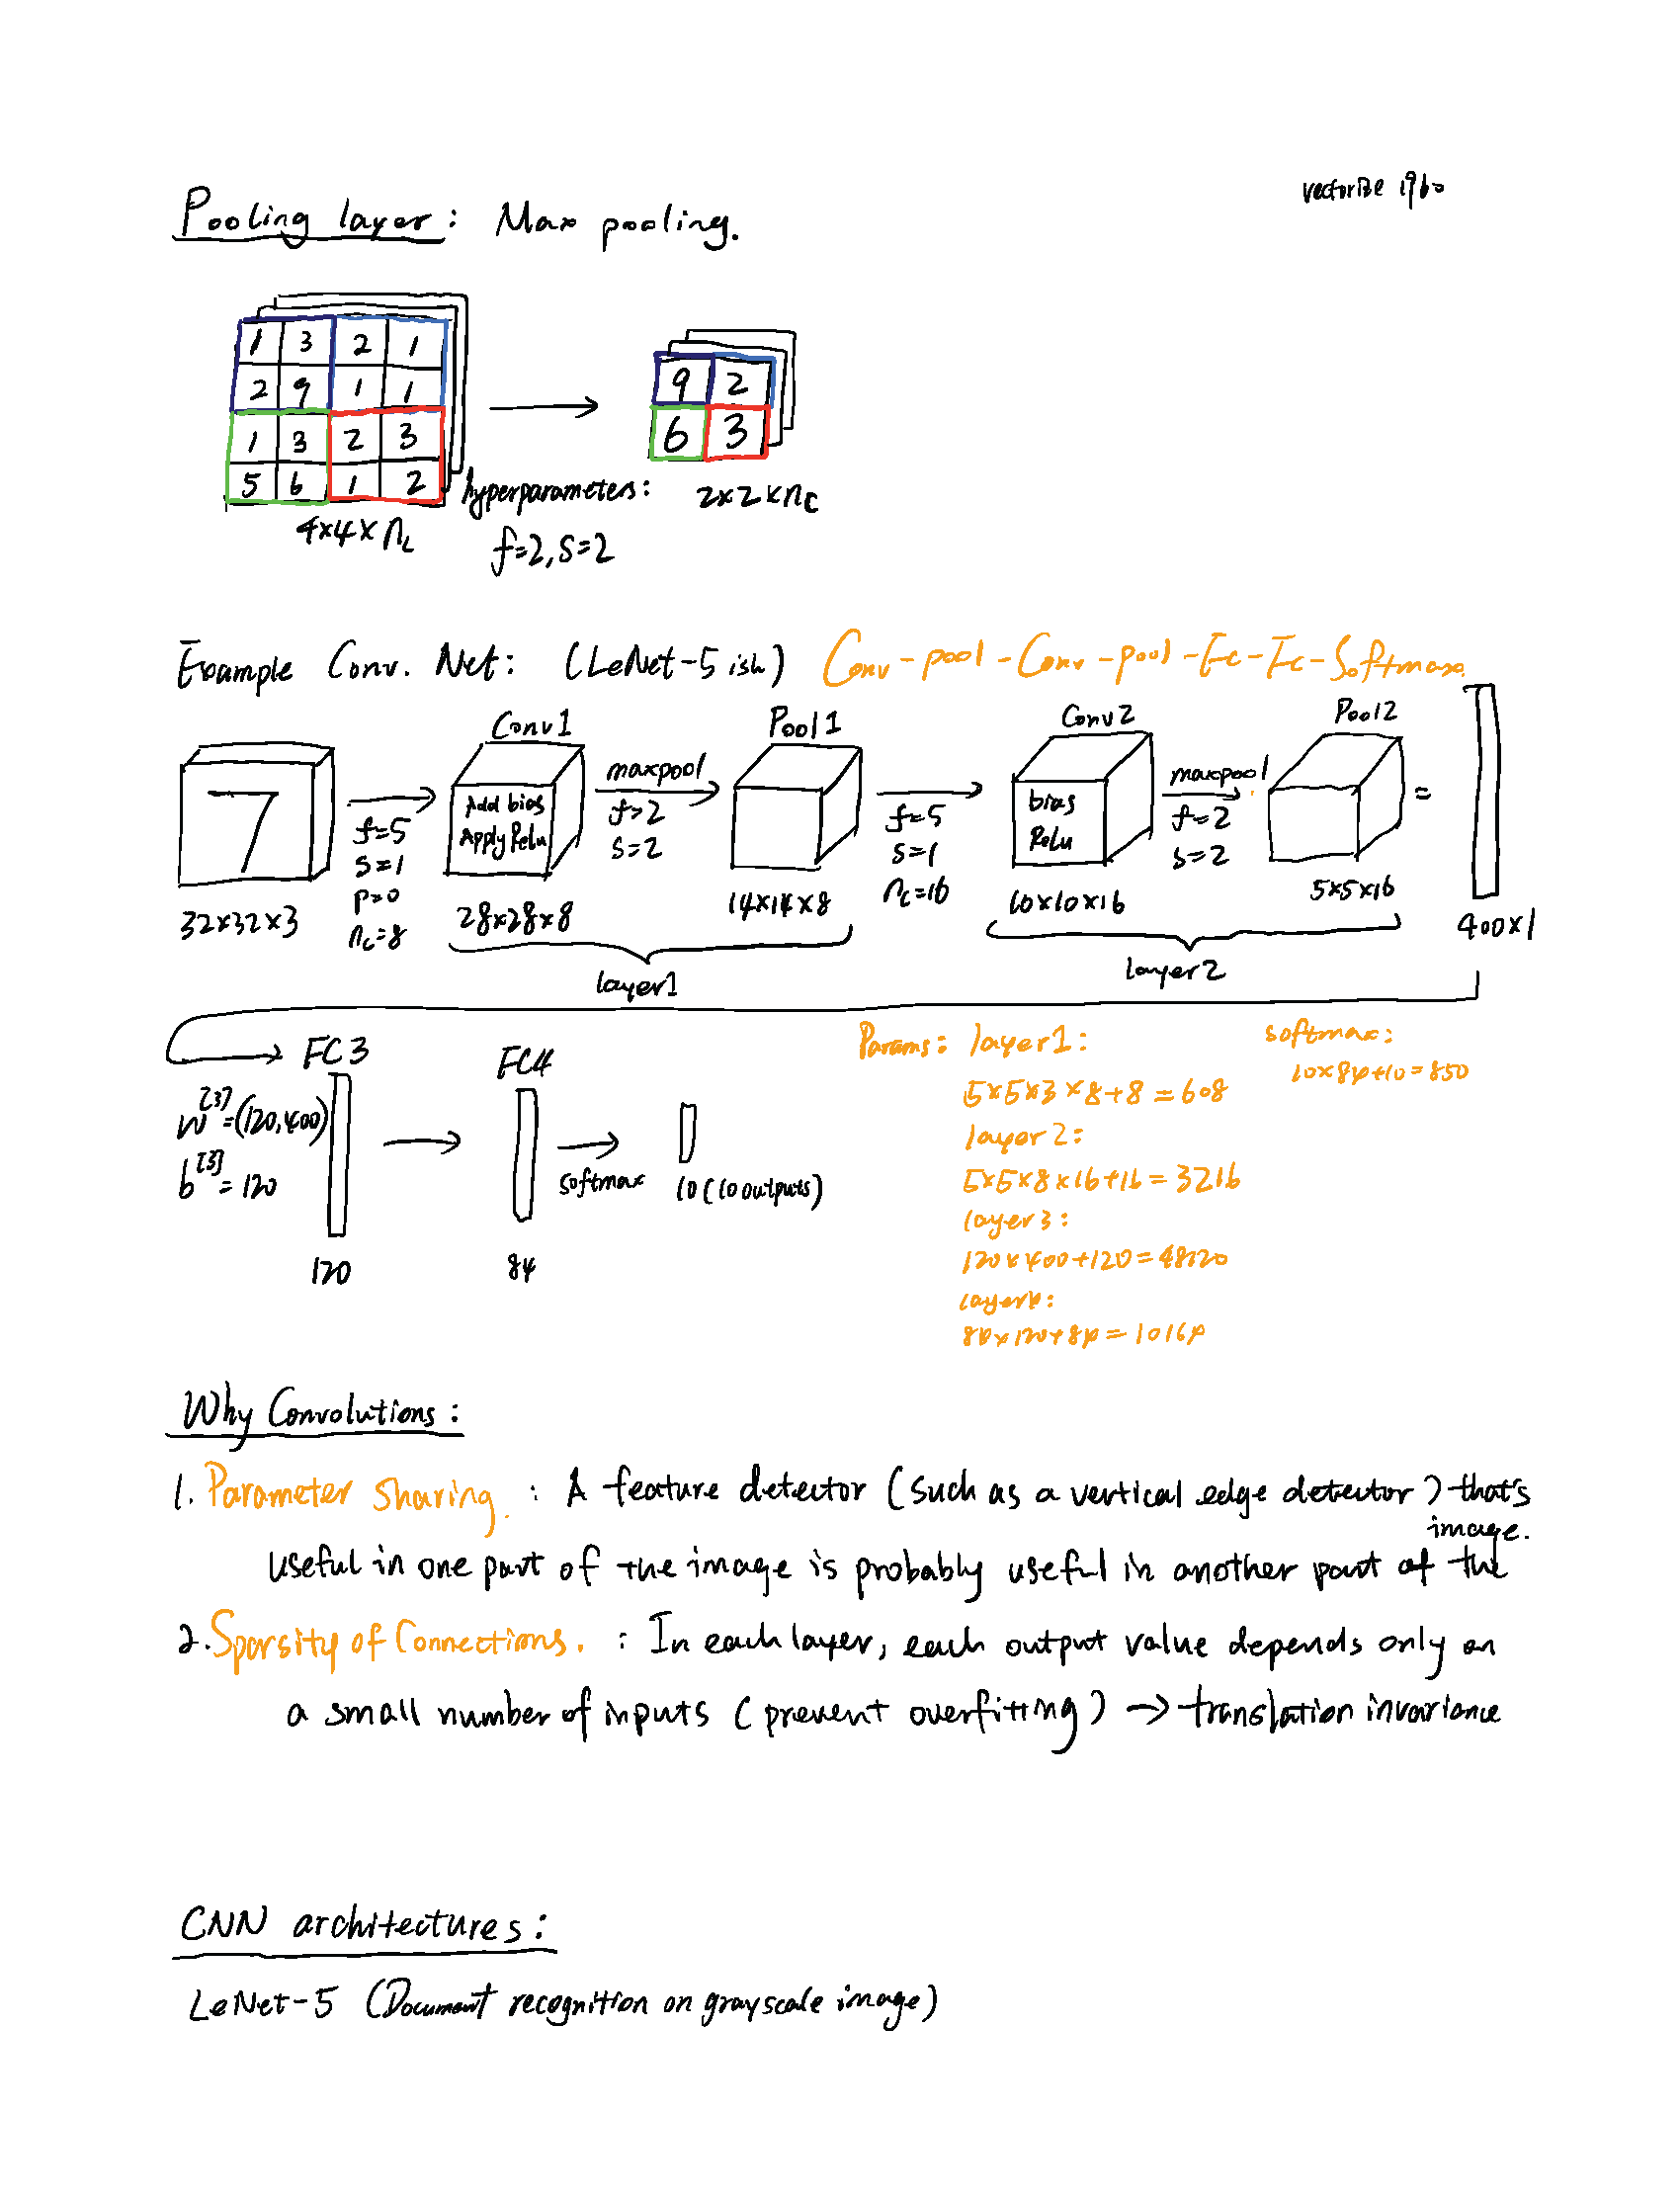 vectorize 1960
Pooling layer: Max pooling.
1 3 2 1
2 9 1 1
1 3 2 3
5 6 1 2
4×4×nc
hyperparameters:
f=2, s=2
9 2
6 3
2×2×nc
Example Conv. Net: (LeNet-5 ish) Conv-pool-Conv-pool-Fc-Fc-Softmax.
7
32×32×3
f=5
s=1
p=0
nc=8
Conv1
Add bias
Apply Relu
28×28×8
maxpool
f=2
s=2
Pool1
14×14×8
layer1
f=5
s=1
nc=16
Conv2
bias
Relu
10×10×16
maxpool
f=2
s=2
Pool2
5×5×16
layer2
=
400×1
FC3
w[3]=(120,400)
b[3]=120
120
FC4
84
softmax
10(10 outputs)
Params: layer1:
5×5×3×8+8=608
layer2:
5×5×8×16+16=3216
layer3:
120×400+120=48120
layer4:
84×120+84=10164
softmax:
10×84+10=850
Why Convolutions:
1. Parameter sharing. : A feature detector (such as a vertical edge detector) that's
useful in one part of the image is probably useful in another part of the
image.
2. Sparsity of Connections. : In each layer, each output value depends only on
a small number of inputs (prevent overfitting) → translation invariance
CNN architectures:
LeNet-5 (Document recognition on grayscale image)